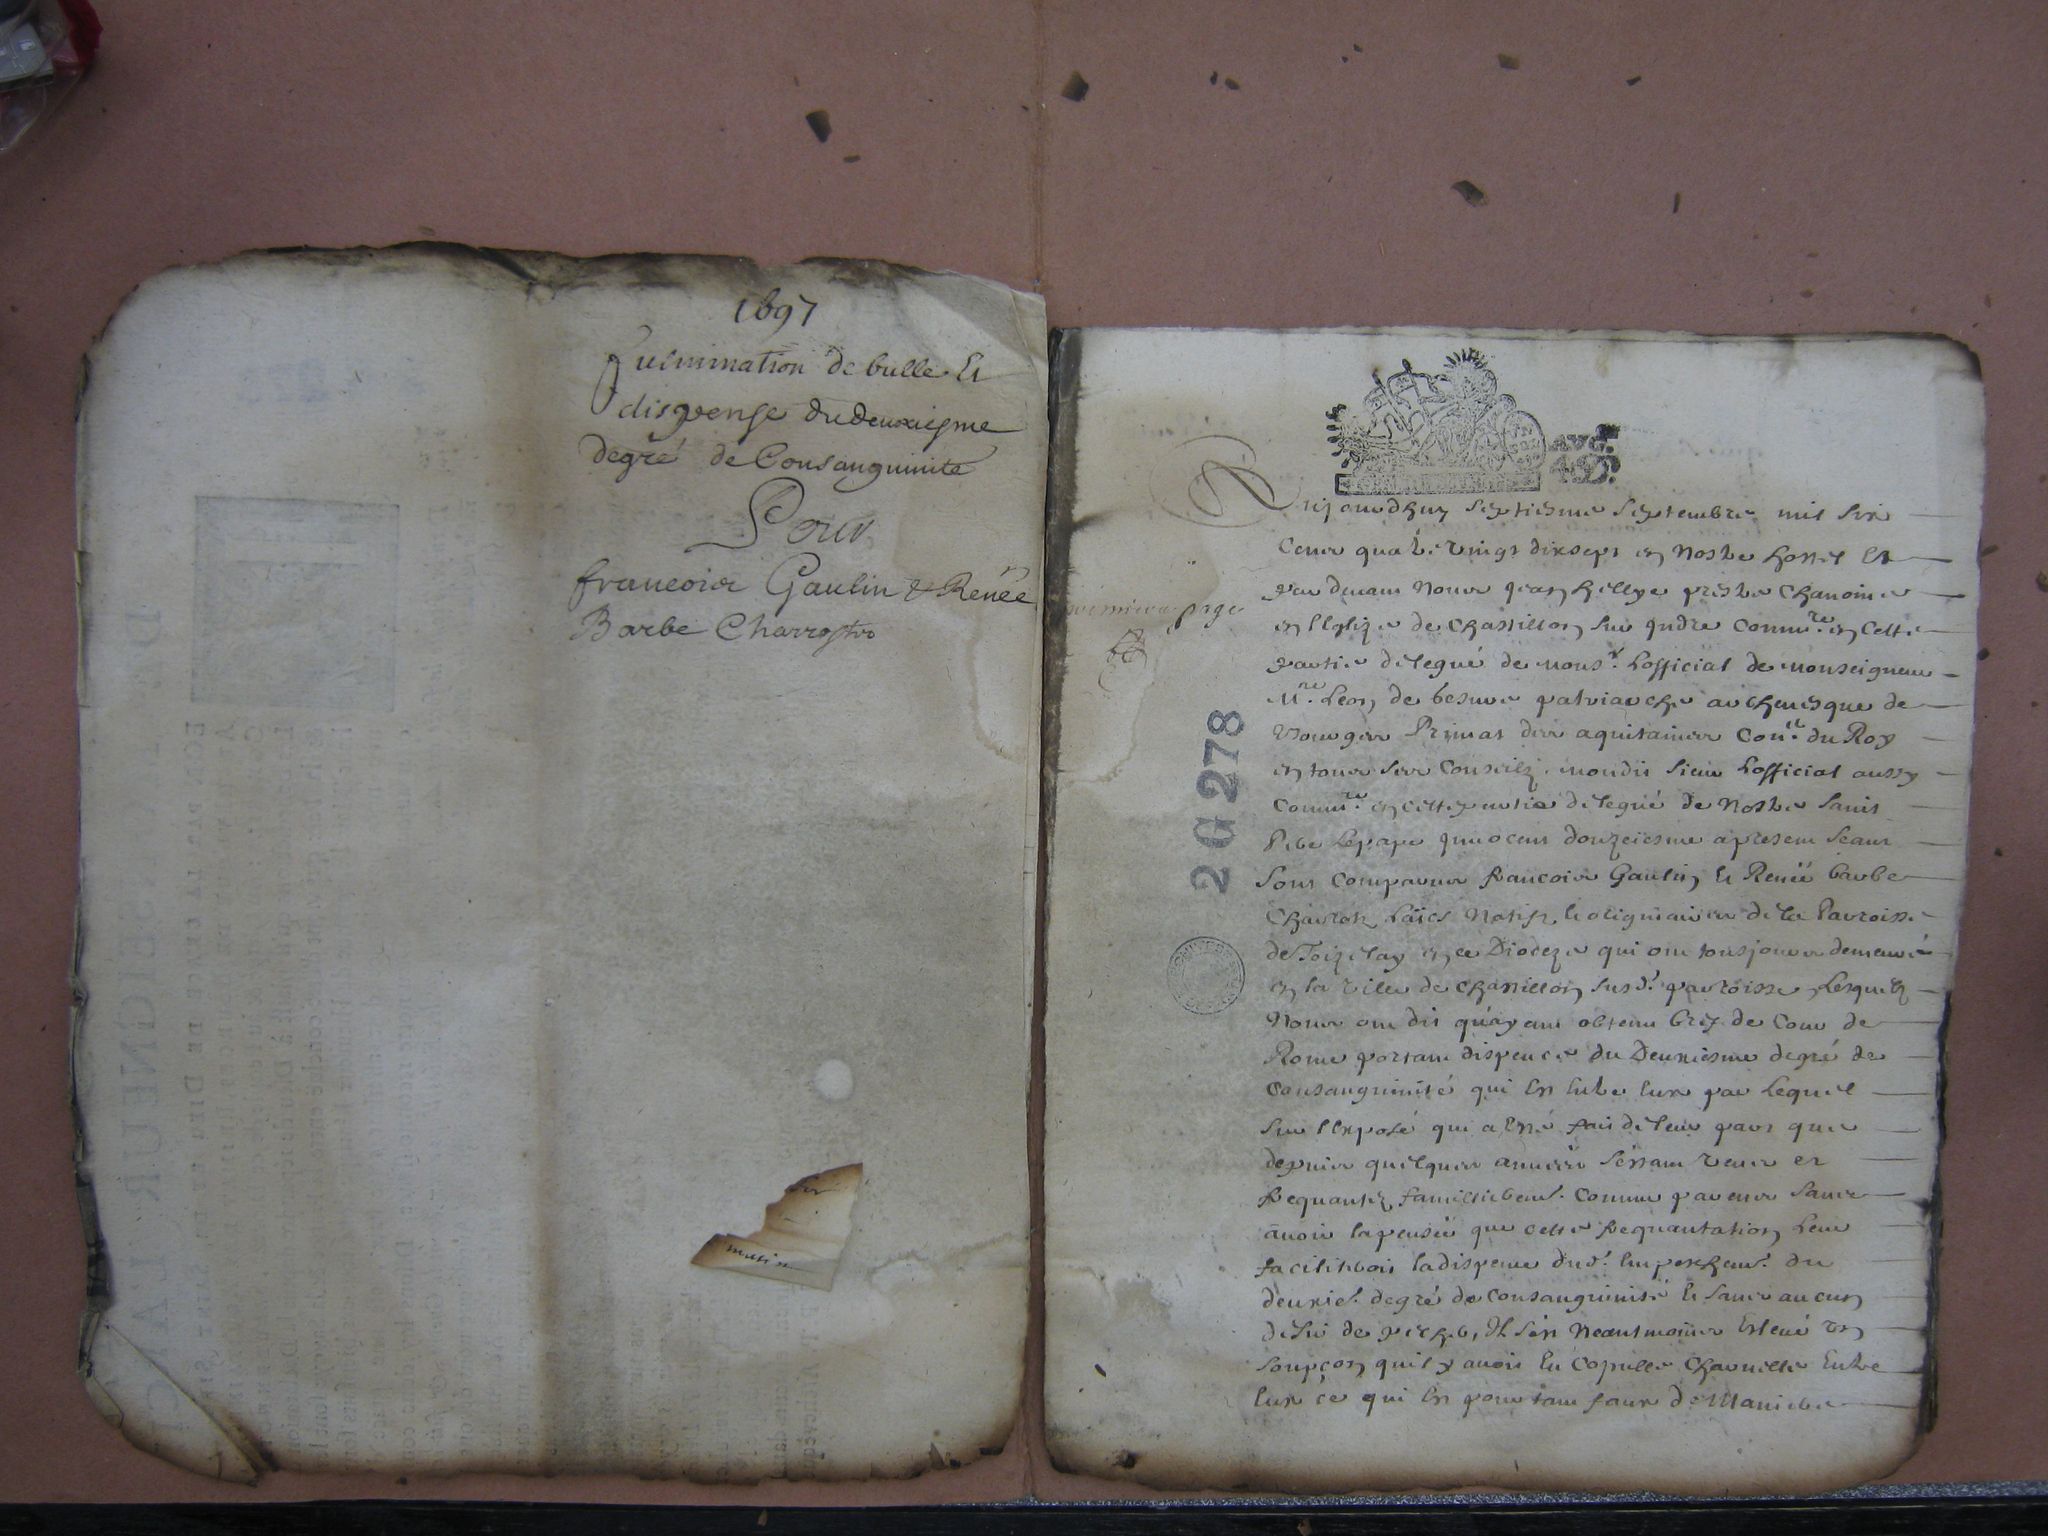 1697
fulmination de bulle Et
dispense du deuxiesme
degré de Consanguinité
Pour
francois Gaulin & Renée
Barbe Charroston
premiere page
2G 278
AVG.
Aujourdhuy septiesme septembre mil six
Cens quatre vingt dixsept en nostre hostel Et
par devant Nous Jean hellye prestre Chanoine
en l'Eglize de Chastillon sur Indre Commre. en cette
partie delegué de monsr. Lofficial de monseigneur
Mre. Leon de besvre patriarche archevesque de
Bourges Primat des aquitaines Conr. du Roy
en tous ses Conseilz, mondit sieur Lofficial aussy
Commre. en cette partie delegué de Nostre saint
Pere Lepape Innocent douzeiesme apresent seant
Sont comparus francois Gaulin Et Renée barbe
Laics Natifz & originaires de la Parroisse
de Toizelay en ce Dioceze qui ont tousjours demeuré
en la ville de Chastillon susd. parroisse, Lesquelz
Nous ont dit qu'ayant obtenu bref de Cour de
Rome portant dispence du Deuxiesme degré de
Consanguinité qui Est Entre Eux par Lequel
sur l'Exposé qui a Esté fait de leur part que
depuis quelques années s'estant veus et
frequantez famillierement Comme parens sans
avoir la pensée que cette frequantation Leur
faciliteroit la dispence dud. Empeschemt. du
deuxie. degré de Consanguinité Et sans aucun
desir de pecher, Il s'est Neantmoins Eslevé un
soupçon qu'il y avoit Eu Copulle Charnelle Entre
Eux ce qui Est pourtant faux de Maniere